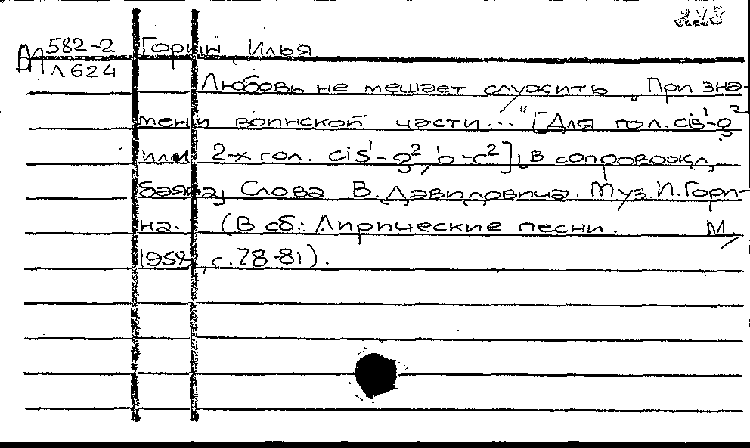 М 582-2 Горин, Илья
Л624
Любовь не мешает служить „При зна-
мени воинской части..." [Для гол. cis¹-g²
или 2-х гол. cis¹-g², b-c²] в сопровожд.
баяна] Слова В. Давидовича. Муз И. Гори-
на. (В сб: Лирические песни. М,
195 , с. 78-81).